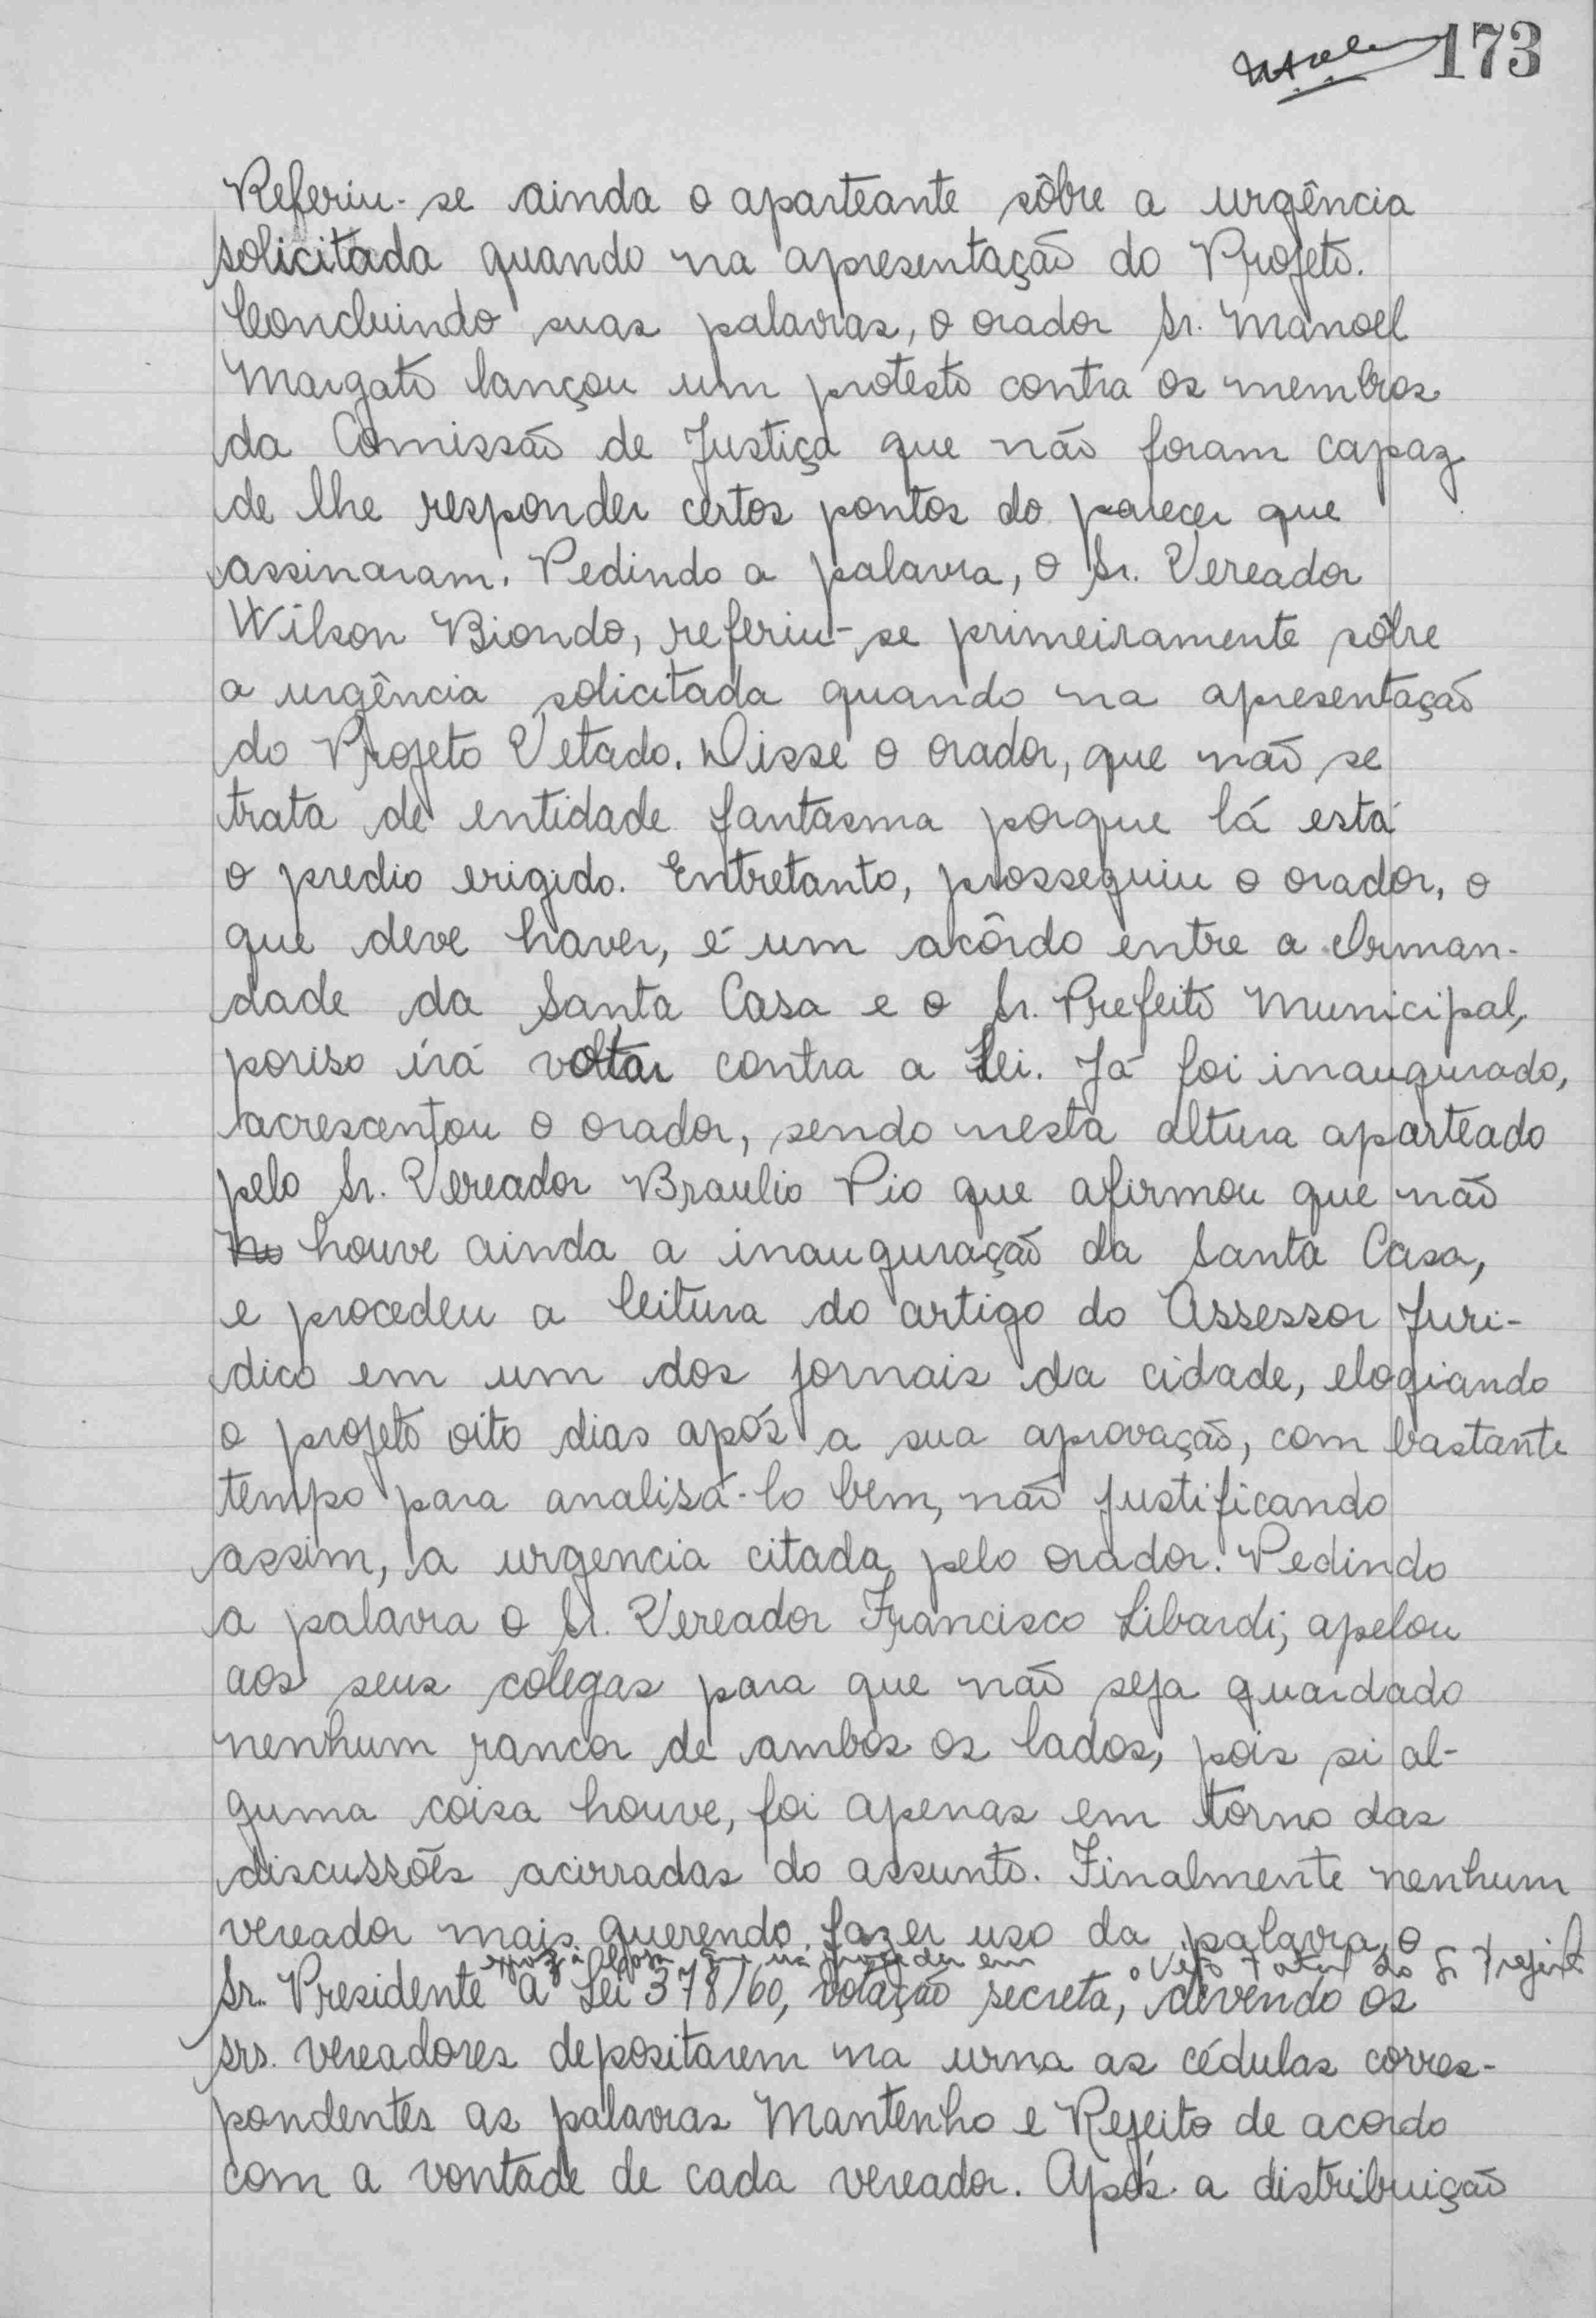 173
Referiu-se ainda o aparteante sôbre a urgência
solicitada quando na apresentação do Projeto.
Concluindo suas palavras, o orador Sr. Manoel
Margato lançou um protesto contra os membros
da Comissão de Justiça que não foram capaz
de lhe responder certos pontos do parecer que
assinaram. Pedindo a palavra, o Sr. Vereador
Wilson Biondo, referiu-se primeiramente sôbre
a urgência solicitada quando na apresentação
do Projeto Vetado. Disse o orador, que não se
trata de entidade fantasma porque lá está
o predio erigido. Entretanto, prosseguiu o orador, o
que deve haver, é um acôrdo entre a Irman-
dade da Santa Casa e o Sr. Prefeito Municipal,
poriso irá voltar contra a Lei. Já foi inaugurado,
acrescentou o orador, sendo nesta altura aparteado
pelo Sr. Vereador Braulio Pio que afirmou que não
houve ainda a inauguração da Santa Casa,
e procedeu a leitura do artigo do Assessor Juri-
dico em um dos jornais da cidade, elogiando
o projeto oito dias após a sua aprovação, com bastante
tempo para analisá-lo bem, não justificando
assim, a urgencia citada pelo orador. Pedindo
a palavra o Sr. Vereador Francisco Libardi, apelou
aos seus colegas para que não seja guardado
nenhum rancor de ambos os lados, pois si al-
guma coisa houve, foi apenas em torno das
discussões acirradas do assunto. Finalmente nenhum
vereador mais querendo fazer uso da palavra, o
que irá proceder em o Veto Total do Sr Prefeito
Sr. Presidente a Lei 378/60, votação secreta, devendo os
srs. vereadores depositarem na urna as cédulas corres-
pondentes as palavras Mantenho e Rejeito de acordo
com a vontade de cada vereador. Após a distribuição